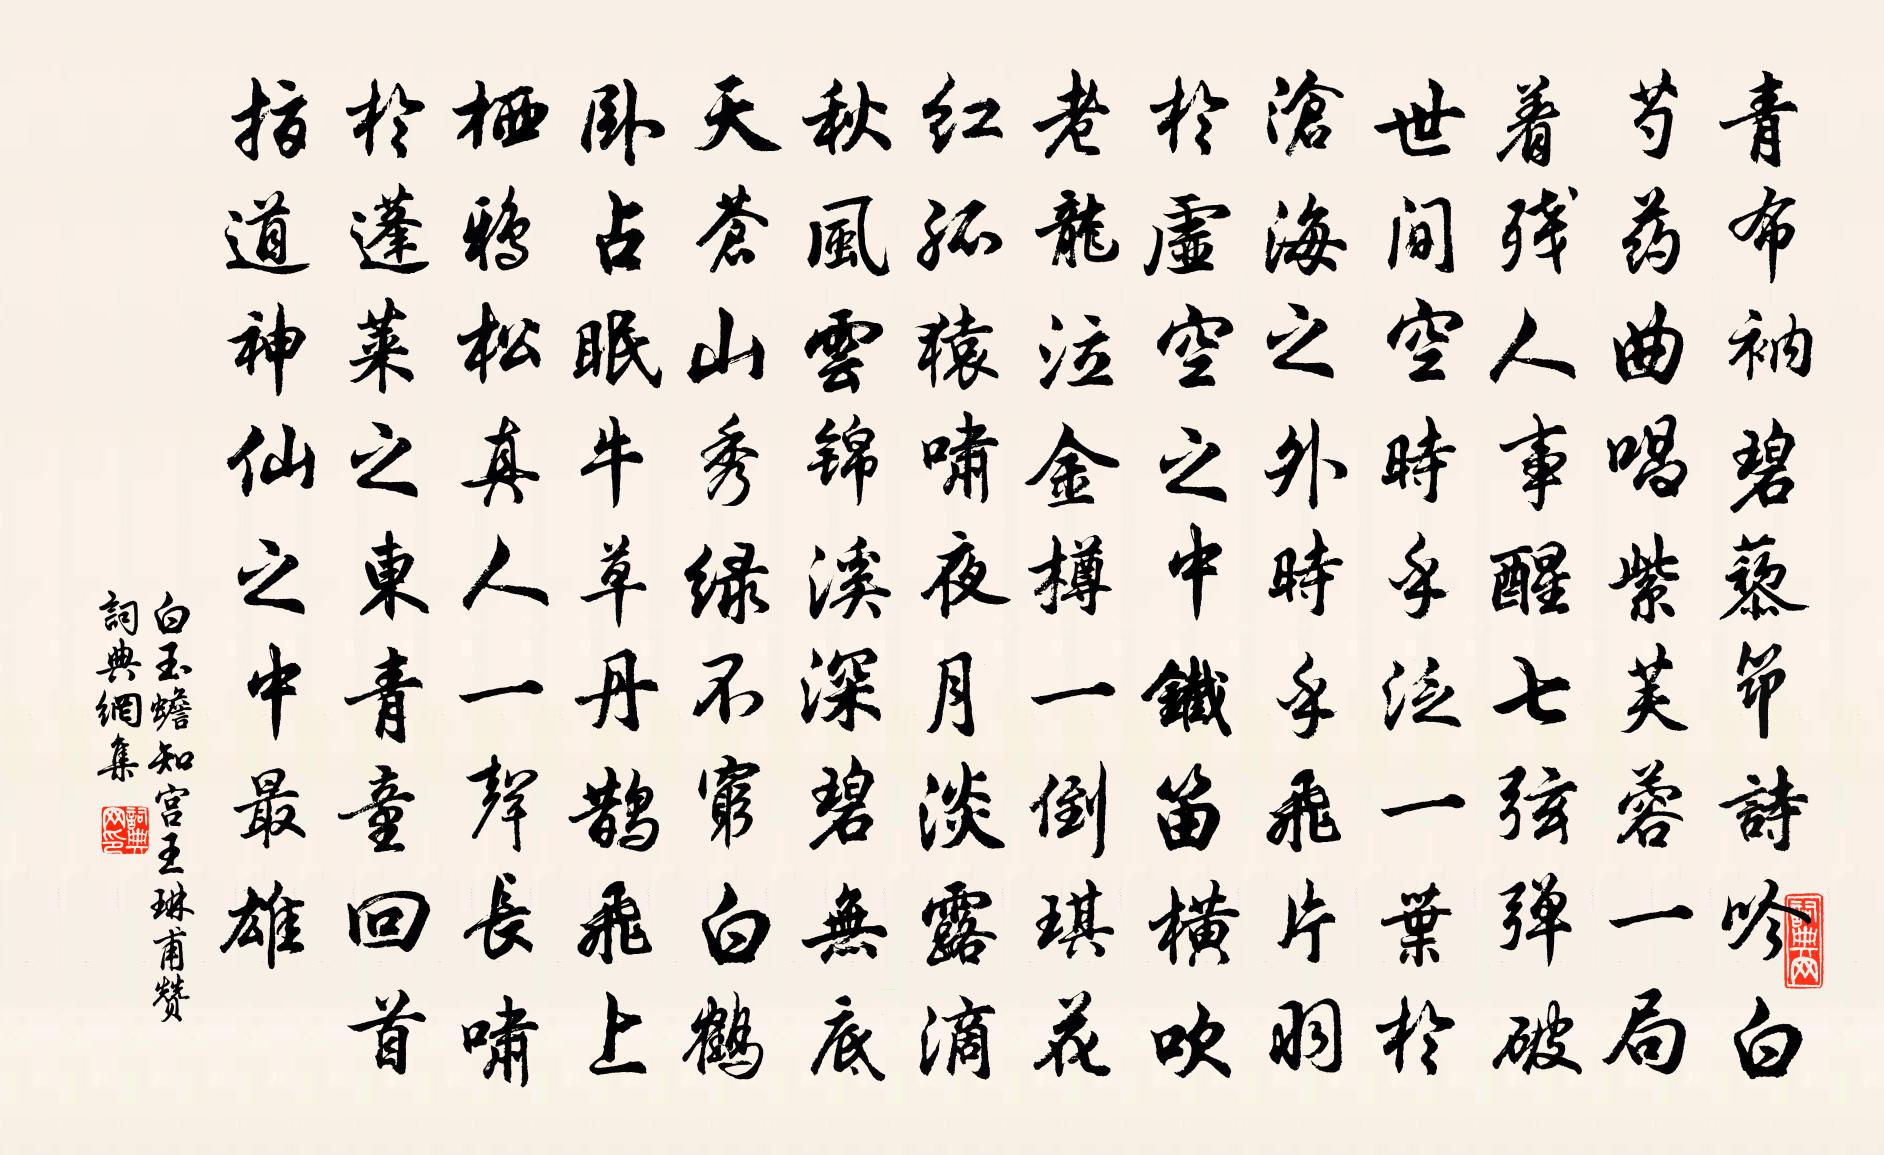 青布衲碧藜笻詩吟白
芍药曲唱紫芙蓉一局
着残人事醒七弦弹破
世间空時乎泛一葉於
滄海之外時乎飛片羽
於虛空之中鐵笛橫吹
老龍泣金樽一倒琪花
红孤猿嘯夜月淡露滴
秋風雲锦溪深碧無底
天蒼山秀绿不窮白鶴
卧占眠牛草丹鹊飛上
栖鴉松真人一聲長嘯
於蓬莱之東青童回首
指道神仙之中最雄
白玉蟾知宫王琳甫赞
詞典網集
詞典網
詞典网印